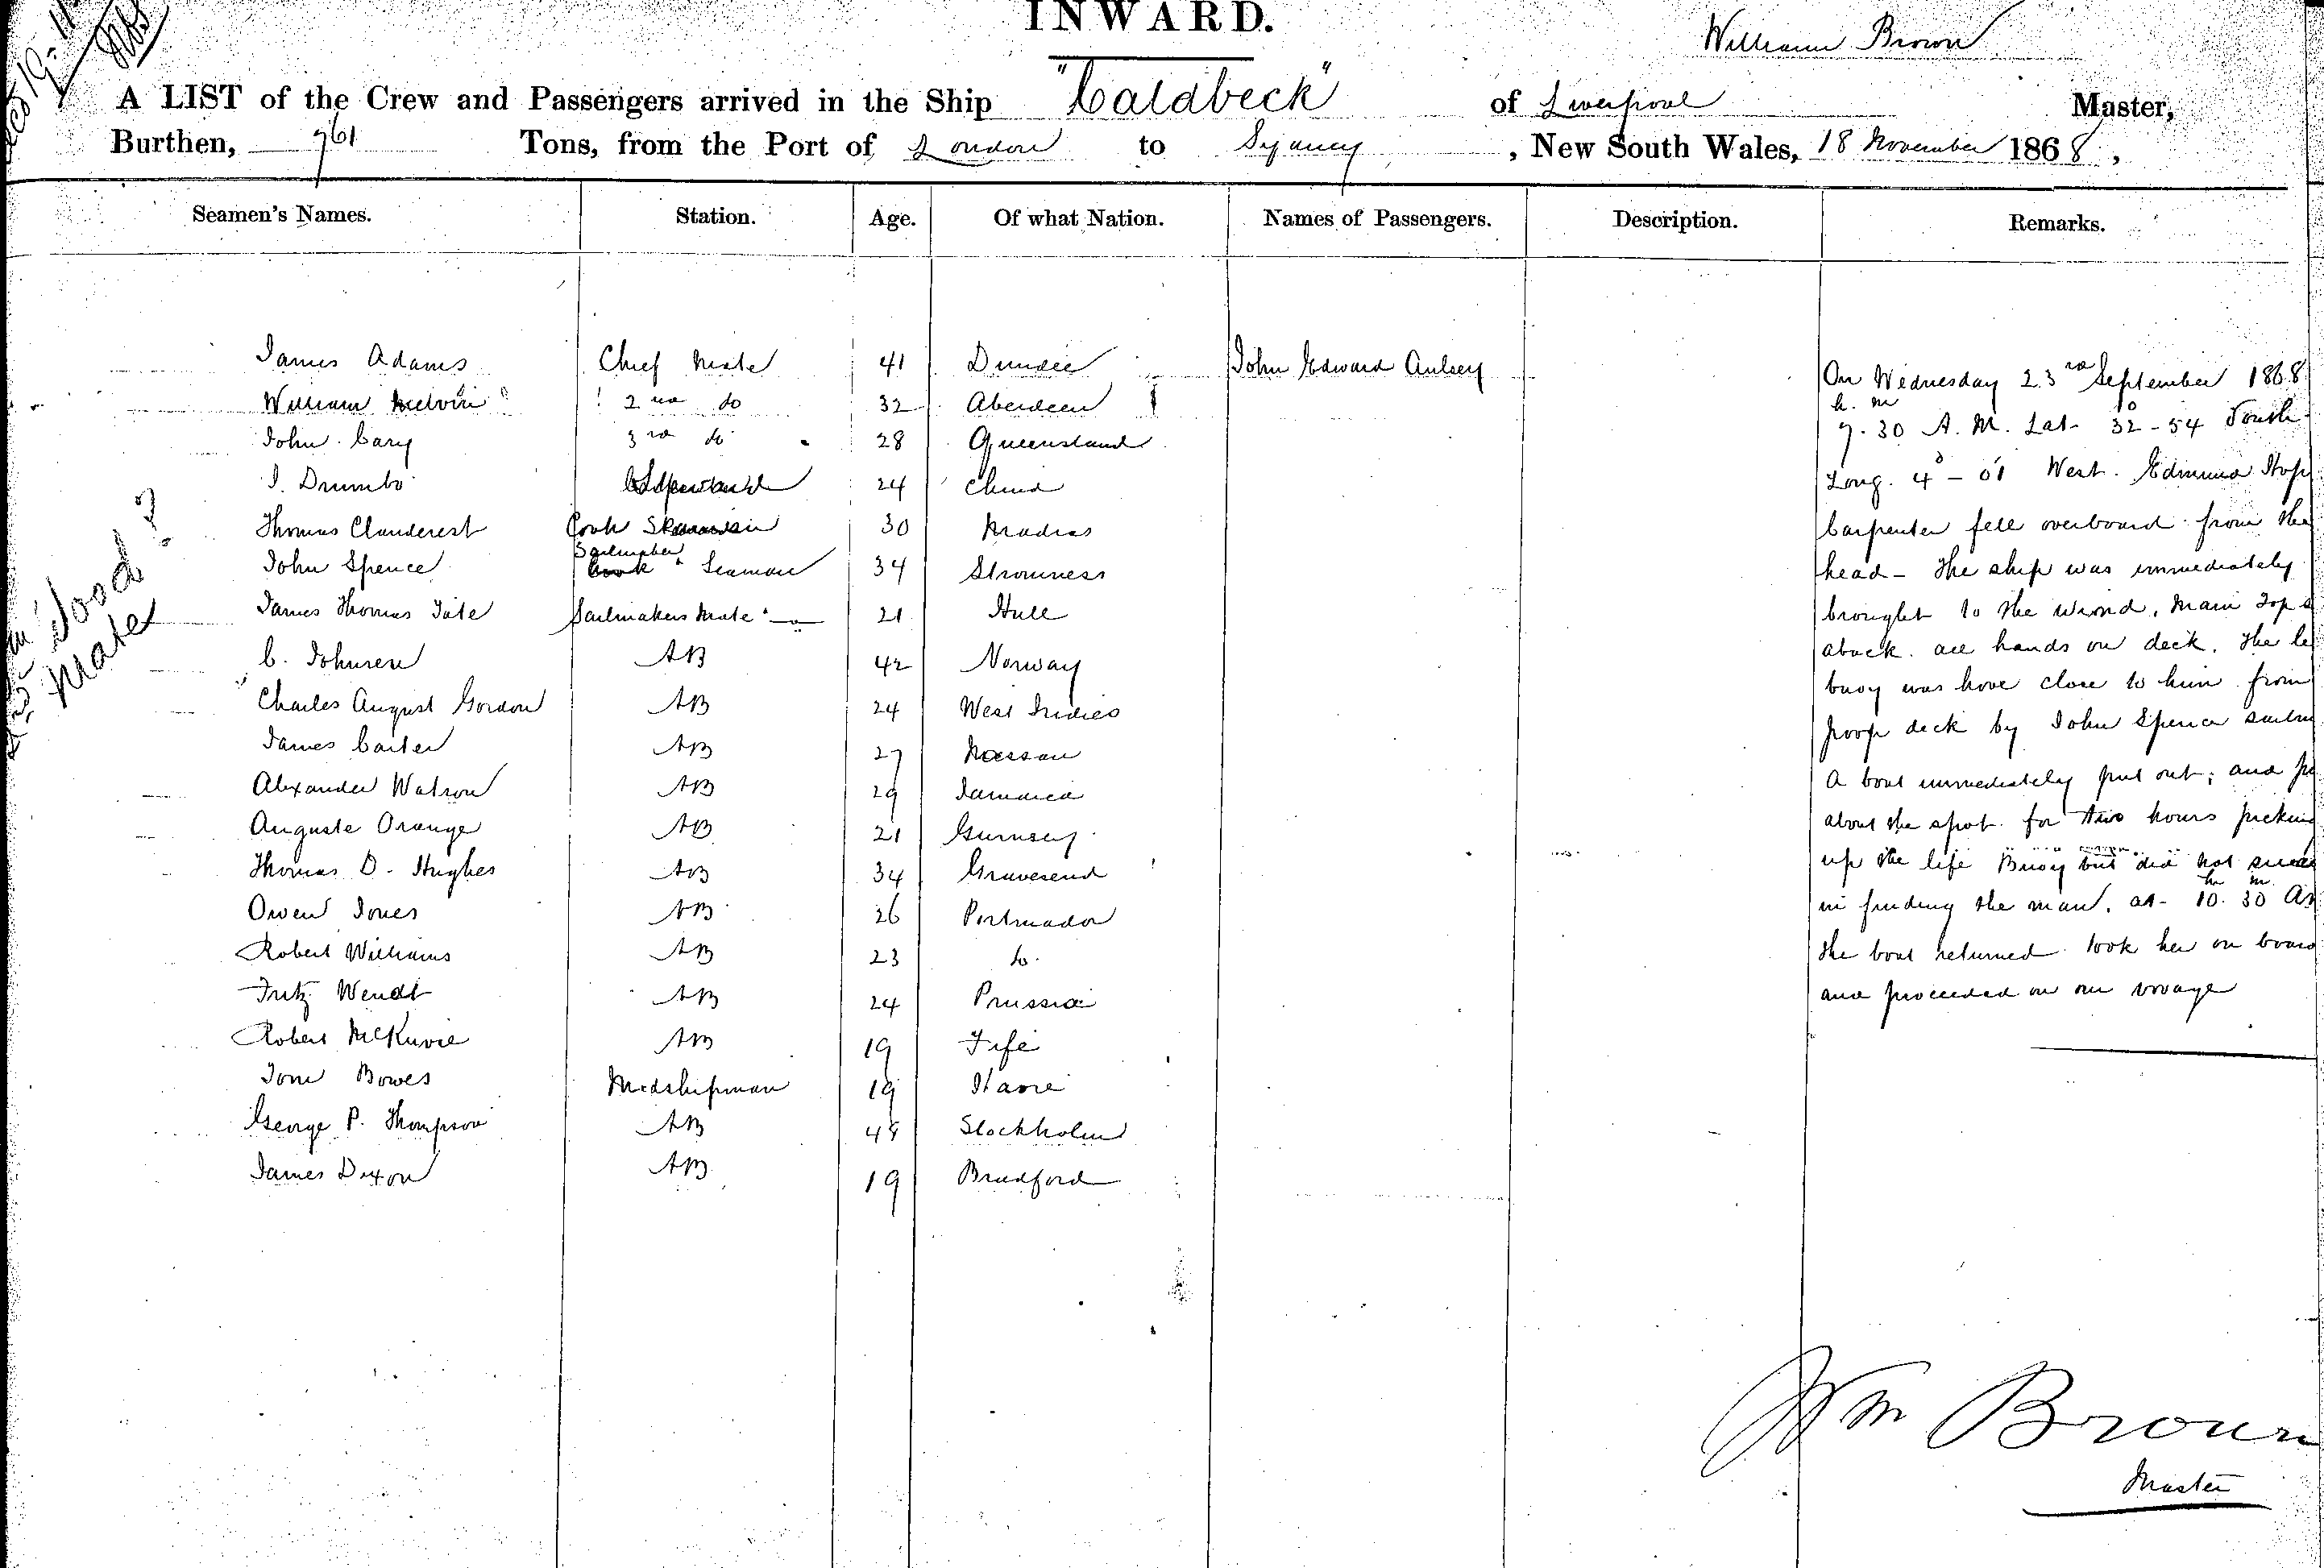 INWARD.
William Brown
A LIST of the Crew and Passengers arrived in the Ship "Caldbeck" of Liverpool Master,
Burthen, 961 Tons, from the Port of London to Sydney, New South Wales, 18 November 1868,
Seamen's Names. Station. Age. Of what Nation. Names of Passengers. Description. Remarks.
James Adams Chief Mate 41 Dundee John Edward
William Melvin 2nd do 32 Aberdeen
John Cary 3rd do 28 Queensland
J. Drumbo 24 China
Thomas Clauderest Cook 30 Madras
John Spence Sailmaker Seaman 34 Stromness
James Thomas Tate Sailmakers Mate 21 Hull
C. Johnsen AB 42 Norway
Charles August Gordon AB 24 West Indies
James Carter AB 27 Nassau
Alexander Watson AB 29 Jamaica
Auguste Orange AB 21 Gurnsey
Thomas D. Hughes AB 34 Gravesend
Owen Jones AB 26 Portmador
Robert Williams AB 23 do.
Fritz Wendt AB 24 Prussia
Robert AB 19 Fife
Tom Bowes Midshipman 19
George P. Thompson AB 48 Stockholm
James Dixon AB 19 Bradford
On Wednesday 23rd September 1868
h. m
7.30 A.M. Lat 32°-54 South
Long. 4°-01 West. Edmund Hop
Carpenter fell overboard from the
head - the ship was immediately
brought to the wind, Main Top s
aback. all hands on deck. The le
buoy was hove close to him from
poop deck by John Spence sailm
A boat immediately put out; and pu
about the spot for two hours pickin
up the life Buoy but did not succe
in finding the man. at 10h.30m AM
the boat returned took her on board
and proceeded on our voyage
Wm Brown
Master